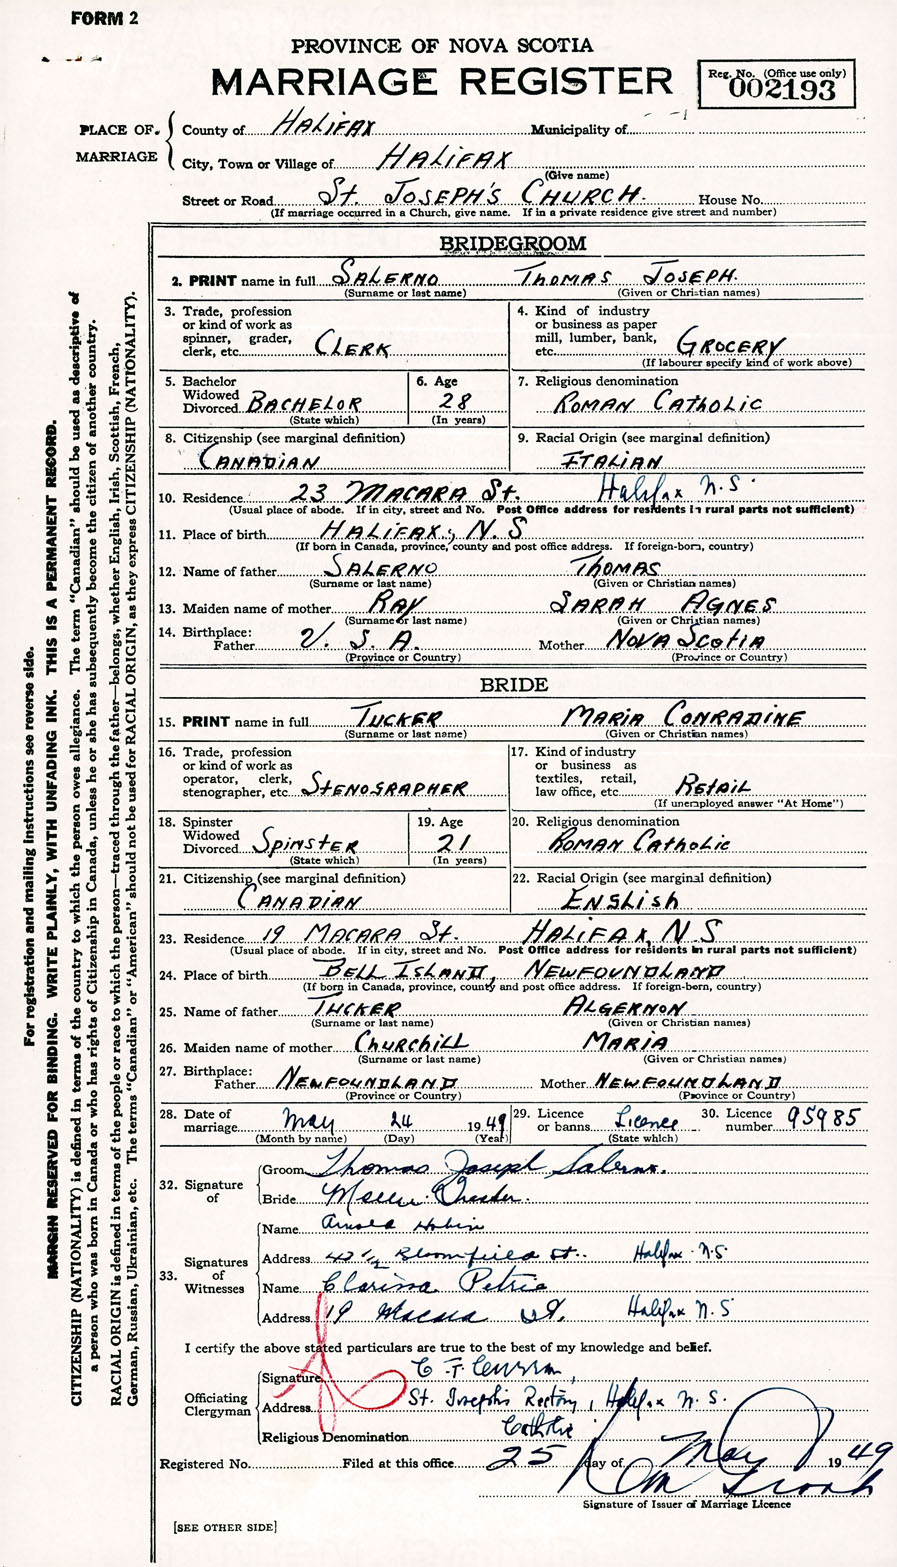 FORM 2
PROVINCE OF NOVA SCOTIA
MARRIAGE REGISTER
Reg. No. (Office use only)
002193
PLACE OF MARRIAGE
County of HALIFAX Municipality of
City, Town or Village of HALIFAX
(Give name)
Street or Road St. JOSEPH'S CHURCH. House No.
(If marriage occurred in a Church, give name. If in a private residence give street and number)
BRIDEGROOM
2. PRINT name in full SALERNO THOMAS JOSEPH.
(Surname or last name) (Given or Christian names)
3. Trade, profession
or kind of work as
spinner, grader,
clerk, etc. CLERK
4. Kind of industry
or business as paper
mill, lumber, bank,
etc. GROCERY
(If labourer specify kind of work above)
5. Bachelor
Widowed
Divorced BACHELOR
(State which)
6. Age
28
(In years)
7. Religious denomination
ROMAN CATHOLIC
8. Citizenship (see marginal definition)
CANADIAN
9. Racial Origin (see marginal definition)
ITALIAN
10. Residence 23 MACARA St. Halifax N.S.
(Usual place of abode. If in city, street and No. Post Office address for residents in rural parts not sufficient)
11. Place of birth HALIFAX, N.S
(If born in Canada, province, county and post office address. If foreign-born, country)
12. Name of father SALERNO THOMAS
(Surname or last name) (Given or Christian names)
13. Maiden name of mother RAY SARAH AGNES
(Surname or last name) (Given or Christian names)
14. Birthplace:
Father U. S. A. Mother NOVA SCOTIA
(Province or Country) (Province or Country)
BRIDE
15. PRINT name in full TUCKER MARIA CONRADINE
(Surname or last name) (Given or Christian names)
16. Trade, profession
or kind of work as
operator, clerk,
stenographer, etc. STENOGRAPHER
17. Kind of industry
or business as
textiles, retail,
law office, etc. RETAIL
(If unemployed answer "At Home")
18. Spinster
Widowed
Divorced SPINSTER
(State which)
19. Age
21
(In years)
20. Religious denomination
ROMAN CATHOLIC
21. Citizenship (see marginal definition)
CANADIAN
22. Racial Origin (see marginal definition)
ENGLISH
23. Residence 19 MACARA St. HALIFAX, N.S
(Usual place of abode. If in city, street and No. Post Office address for residents in rural parts not sufficient)
24. Place of birth BELL ISLAND, NEWFOUNDLAND
(If born in Canada, province, county and post office address. If foreign-born, country)
25. Name of father TUCKER ALGERNON
(Surname or last name) (Given or Christian names)
26. Maiden name of mother CHURCHILL MARIA
(Surname or last name) (Given or Christian names)
27. Birthplace:
Father NEWFOUNDLAND Mother NEWFOUNDLAND
(Province or Country) (Province or Country)
28. Date of
marriage May 24 1949
(Month by name) (Day) (Year)
29. Licence
or banns. Licence
(State which)
30. Licence
number. 95985
32. Signature
of
Groom Thomas Joseph Salerno.
Bride
33. Signatures
of
Witnesses
Name Arnold
Address 42 1/2 Bloomfield St. Halifax N.S
Name Clarissa Petrie
Address 19 Macara St. Halifax N.S
I certify the above stated particulars are true to the best of my knowledge and belief.
Officiating
Clergyman
Signature C. F.
Address St. Joseph's Rectory, Halifax N.S.
Religious Denomination Catholic
Registered No. Filed at this office 25 day of May 1949
Signature of Issuer of Marriage Licence
[SEE OTHER SIDE]
For registration and mailing instructions see reverse side.
MARGIN RESERVED FOR BINDING. WRITE PLAINLY, WITH UNFADING INK. THIS IS A PERMANENT RECORD.
CITIZENSHIP (NATIONALITY) is defined in terms of the country to which the person owes allegiance. The term "Canadian" should be used as descriptive of
a person who was born in Canada or who has rights of Citizenship in Canada, unless he or she has subsequently become the citizen of another country.
RACIAL ORIGIN is defined in terms of the people or race to which the person—traced through the father—belongs, whether English, Irish, Scottish, French,
German, Russian, Ukrainian, etc. The terms "Canadian" or "American" should not be used for RACIAL ORIGIN, as they express CITIZENSHIP (NATIONALITY).